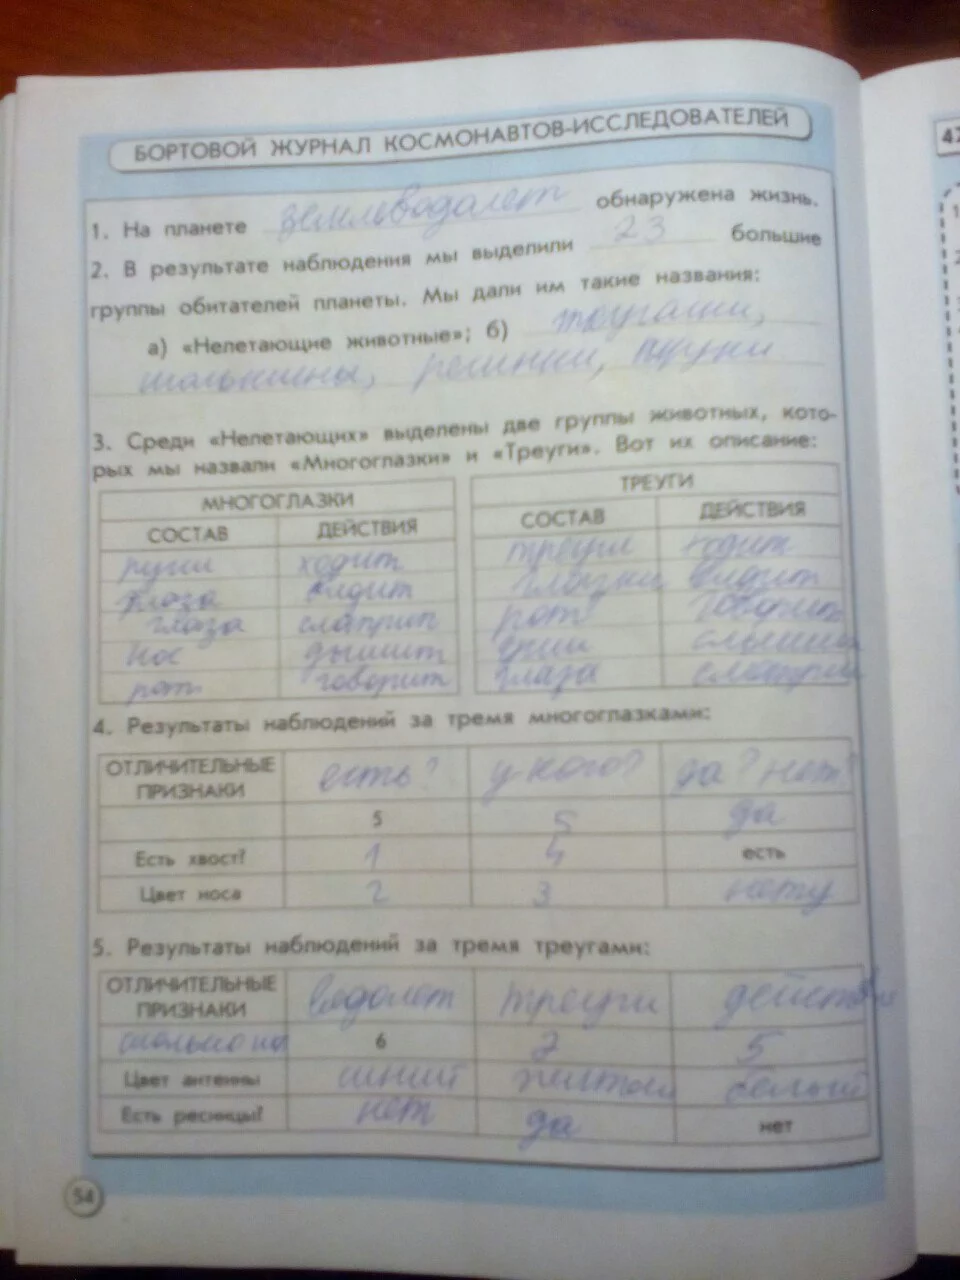 БОРТОВОЙ ЖУРНАЛ КОСМОНАВТОВ-ИССЛЕДОВАТЕЛЕЙ
1. На планете землеводолет обнаружена жизнь.
2. В результате наблюдения мы выделили 23 большие
группы обитателей планеты. Мы дали им такие названия:
а) «Нелетающие животные»; б)
3. Среди «Нелетающих» выделены две группы животных, кото-
рых мы назвали «Многоглазки» и «Треуги». Вот их описание:
МНОГОГЛАЗКИ ТРЕУГИ
СОСТАВ ДЕЙСТВИЯ СОСТАВ ДЕЙСТВИЯ
ходит треуги ходит
глаза
глаза рот говорит
нос дышит
рот говорит глаза
4. Результаты наблюдений за тремя многоглазками:
ОТЛИЧИТЕЛЬНЫЕ ПРИЗНАКИ есть? у кого? да? нет?
5 5 да
Есть хвост? 1 4 есть
Цвет носа 2 3 нету
5. Результаты наблюдений за тремя треугами:
ОТЛИЧИТЕЛЬНЫЕ ПРИЗНАКИ водолет треуги
6 2 5
Цвет антенны синий желтый белый
Есть ресницы? нет да нет
54